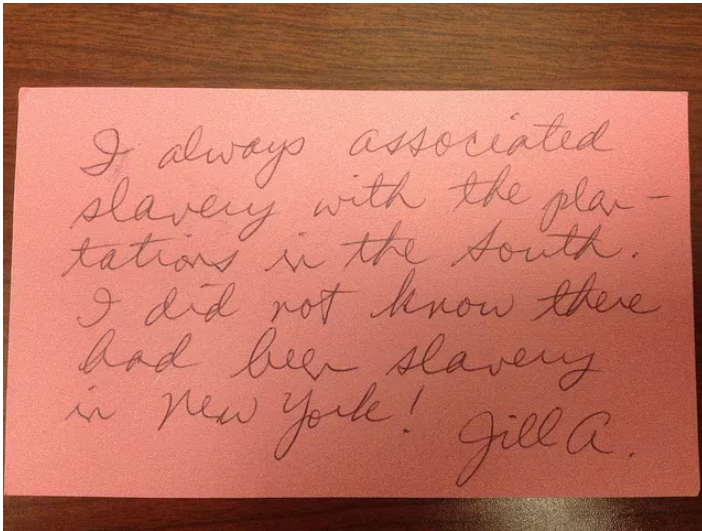 I always associated
slavery with the plan-
tations in the South.
I did not know there
had been slavery
in New York!
Jill A.